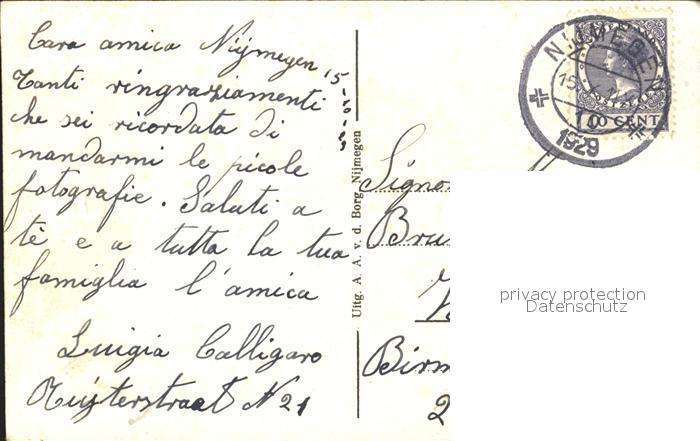 Cara amica Nijmegen 15-
Tanti ringraziamenti
che sei ricordata di
mandarmi le picole
fotografie. Saluti a
tè e a tutta la tua
famiglia l'amica
Luigia Calligaro
N 21
Uitg. A. A. v. d. Borg, Nijmegen
NIJMEGEN
1929
CENT
Signo
Bru
Birm
2
privacy protection
Datenschutz